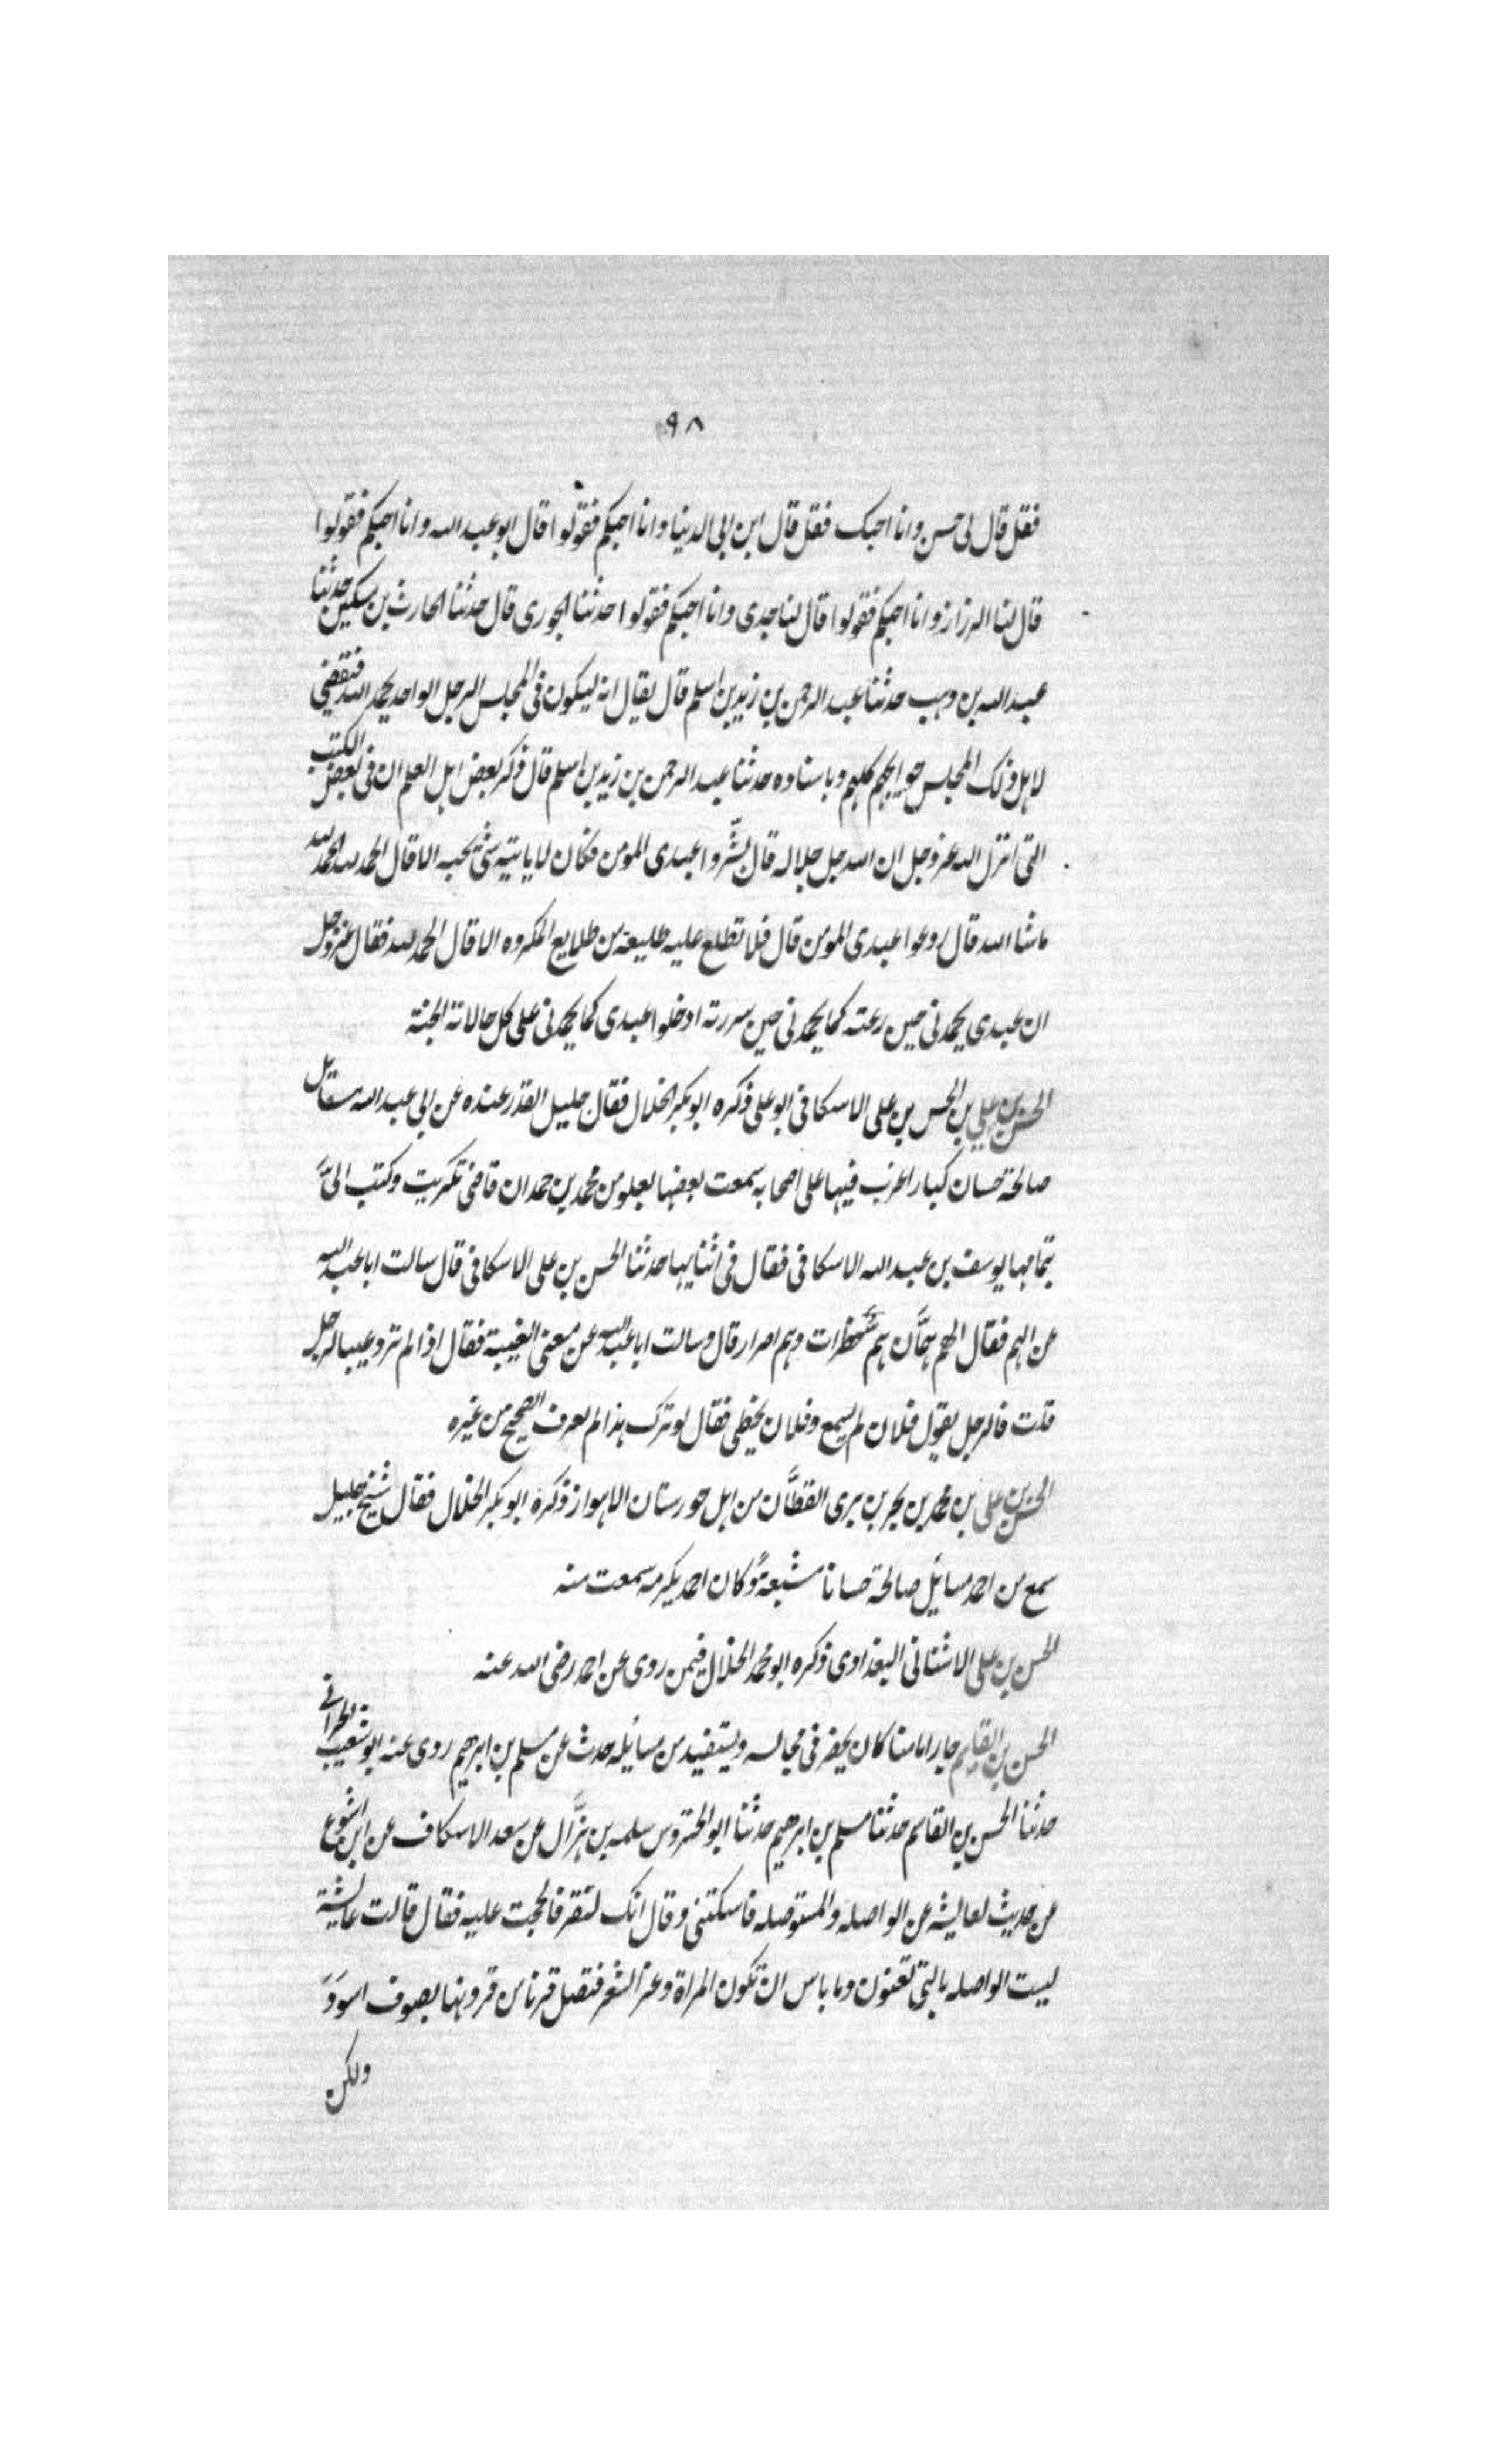 ٩٨
فقل قال لى حسن وانا احبك فقل قال ابن ابى الدنيا وانا احبكم فقولوا قال ابو عبد الله وانا احبكم فقولوا
قال لنا الرزاز وانا احبكم فقولوا قال لنا جدى وانا احبكم فقولوا حدثنا الجورى قال حدثنا الحارث بن مسكين حدثنا
عبد الله بن وهب حدثنا عبد الرحمن بن زيد بن اسلم قال يقال انه ليكون فى المجلس الرجل الواحد يحمد الله فتقضى
لاهل ذلك المجلس حوايجهم كلهم وباسناده حدثنا عبد الرحمن بن زيد بن اسلم قال ذكر بعض اهل العلم ان فى بعض الكتب
التى انزل الله عز وجل ان الله جل جلاله قال بشّروا عبدى المومن فكان لا ياتيه شى يحبه الا قال الحمد لله الحمد لله
ماشا الله قال روعوا عبدى المومن قال فلا تطلع عليه طليعة من طلايع المكروه الا قال الحمد لله فقال عز وجل
ان عبدى يحمدنى حين رعته كما يحمدنى حين سررته ادخلوا عبدى كما يحمدنى على كل حالاته الجنة
الحسن بن على بن الحسن بن على الاسكافى ابو على ذكره ابو بكر الخلال فقال جليل القدر عنده عن ابى عبد الله مسايل
صالحة حسان كبار اغرب فيها على اصحابه سمعت بعضها بعلو من محمد بن حمدان قاضى تكريت وكتب الىّ
بتمامها يوسف بن عبد الله الاسكافى فقال فى اثنايها حدثنا الحسن بن على الاسكافى قال سالت ابا عبد الله
عن الهم فقال الهم همّان هم خطرات وهم اصرار قال وسالت ابا عبد الله عن معنى الغيبة فقال اذا لم ترد عيب الرجل
قلت فالرجل يقول فلان لم يسمع وفلان يخطى فقال لو ترك هذا لم يعرف الصحيح من غيره
الحسن بن على بن محمد بن بحر بن برى القطّان من اهل خورستان الاهواز ذكره ابو بكر الخلال فقال شيخ جليل
سمع من احمد مسائل صالحة حسانا مشبعة وكان احمد يكرمه سمعت منه
الحسن بن على الاشنانى البغدادى ذكره ابو محمد الخلال فيمن روى عن احمد رضى الله عنه
الحسن بن القاسم جار امامنا كان يحضر فى مجالسه ويستفيد من مسائله حدث عن مسلم بن ابرهيم روى عنه ابو شعيب الحرانى
حدثنا الحسن بن القاسم حدثنا مسلم بن ابرهيم حدثنا ابو الحتروس سلمه بن هزّال عن سعد الاسكاف عن ابن اشوع
عن حديث لعايشه عن الواصله والمستوصله فاسكتنى وقال انك لتنقر فالححت عليه فقال قالت عايشة
ليست الواصله بالتى تعنون وما باس ان تكون المراة زعرا الشعر فتصل قرنا من قرونها بصوف اسود
ولكن